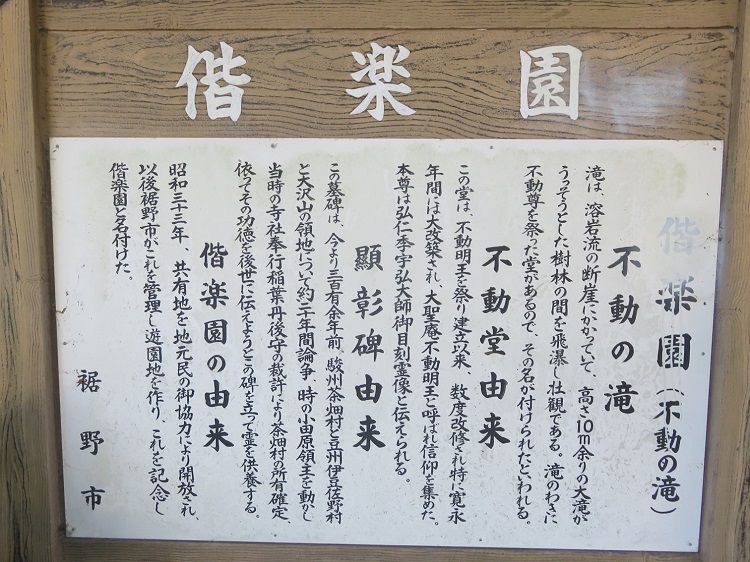 偕楽園
偕楽園(不動の滝)
不動の滝
滝は、溶岩流の断崖にかかっていて、高さ10m余りの大滝が
うっそうとした樹林の間を飛瀑し壮観である。滝のわきに
不動尊を祭った堂があるので、その名が付けられたといわれる。
不動堂由来
この堂は、不動明王を祭り建立以来、数度改修され特に寛永
年間には大改築され、大聖庵不動明王と呼ばれ信仰を集めた。
本尊は弘仁季宇弘大師御目刻霊像と伝えられる。
顕彰碑由来
この墓碑は、今より三百有余年前、駿州茶畑村と豆州伊豆佐野村
と大沢山の領地について約二年間論争、時の小田原領主を動かし
当時の寺社奉行稲葉丹後守の裁許により茶畑村の所有確定、
依ってその功徳を後世に伝えようとこの碑を立って霊を供養する。
偕楽園の由来
昭和三十三年、共有地を地元民の御協力により開放され、
以後裾野市がこれを管理し遊園地を作り、これを記念し
偕楽園と名付けた。
裾野市